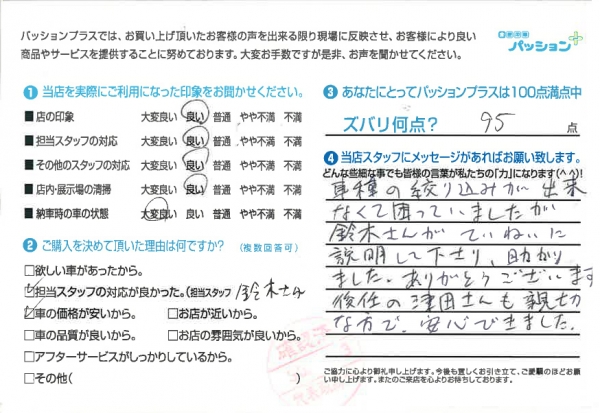 パッションプラスでは、お買い上げ頂いたお客様の声を出来る限り現場に反映させ、お客様により良い
商品やサービスを提供することに努めております。大変お手数ですが是非、お声を聞かせてください。
パッション+
❶ 当店を実際にご利用になった印象をお聞かせください。
■ 店の印象 大変良い 良い 普通 やや不満 不満
■ 担当スタッフの対応 大変良い 良い 普通 やや不満 不満
■ その他のスタッフの対応 大変良い 良い 普通 やや不満 不満
■ 店内・展示場の清掃 大変良い 良い 普通 やや不満 不満
■ 納車時の車の状態 大変良い 良い 普通 やや不満 不満
❷ ご購入を決めて頂いた理由は何ですか? (複数回答可)
□欲しい車があったから。
☑担当スタッフの対応が良かった。(担当スタッフ 鈴木さん
☑車の価格が安いから。 □お店が近いから。
□車の品質が良いから。 □お店の雰囲気が良いから。
□アフターサービスがしっかりしているから。
□その他(
❸ あなたにとってパッションプラスは100点満点中
ズバリ何点? 95 点
❹ 当店スタッフにメッセージがあればお願い致します。
どんな些細な事でも皆様の言葉が私たちの「力」になります(^^)!
車種の絞り込みが出来
なくて困っていましたが
鈴木さんがていねいに
説明して下さり、助かり
ました。ありがとうございます
後任の津田さんも親切
な方で、安心できました。
ご協力に心より御礼申し上げます。今後も宜しくお引き立て、ご愛顧のほどお願
い申し上げます。またのご来店を心よりお待ちしております。